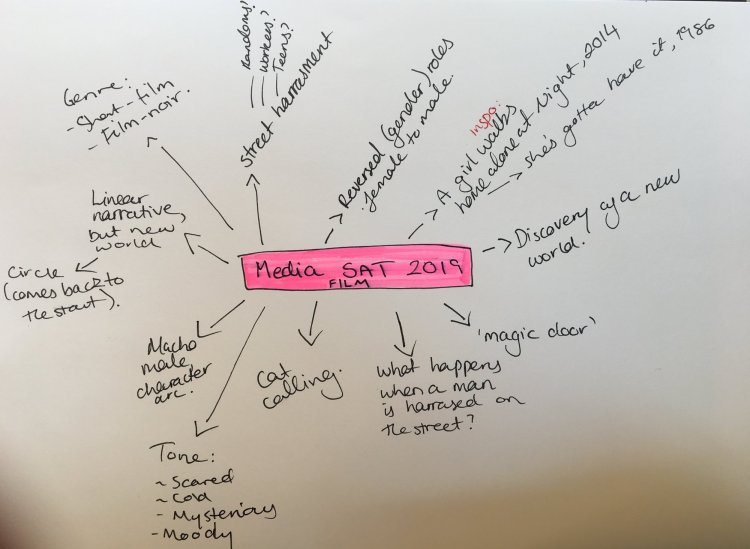 Genre:
- Short-film
- Film-noir.
Randoms?
Workers?
Teens?
Street harrasment
Reversed (gender) roles
female to male.
INSPO:
A girl walks
home alone at Night, 2014
She's gotta have it, 1986
Linear
narrative,
but new
world
Circle
(comes back to
the start).
Media SAT 2019
FILM
Discovery of a new
world.
Macho
male
character
arc.
Cat
calling.
What happens
when a man
is harrased on
the street?
'magic door'
Tone:
~ Scared
~ Cold
- Mysterious
- Moody